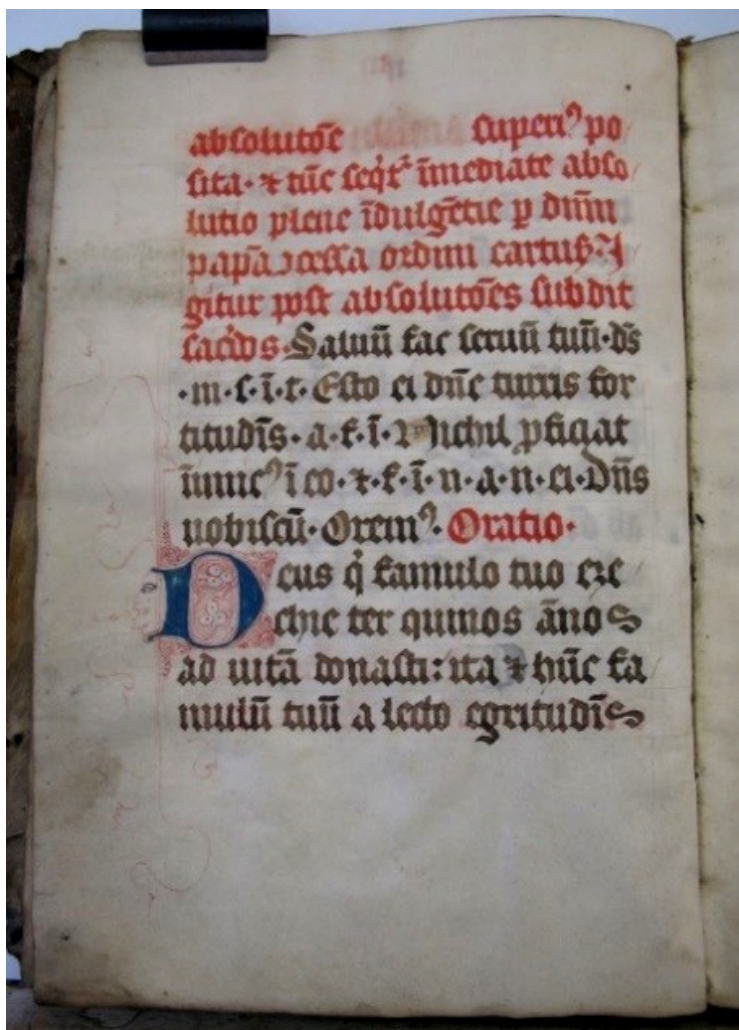 absolutōe superiꝰ po
sita · ⁊ tūc seqͥtʳ īmediate abso
lutio plene īdulgētie ꝑ dn̄m
papā ↄcessa ordini cartuẜ · I
gitur post absolutōes subdit
sac̄dos · Saluū fac seruū tuū · ds̄
· m · s · ī · t · Esto ei dn̄e turris for
titudīs · a · f · ī · Nichil ꝓficiat
inimicꝰ ī eo · ⁊ · f · ī · n · a · n · ei · Dn̄s
nobiscū · Oremꝰ · Oratio ·
Deus qͥ famulo tuo eze
chie ter quinos ānos
ad uitā donasti : ita ⁊ hūc fa
mulū tuū a lecto egritudīs